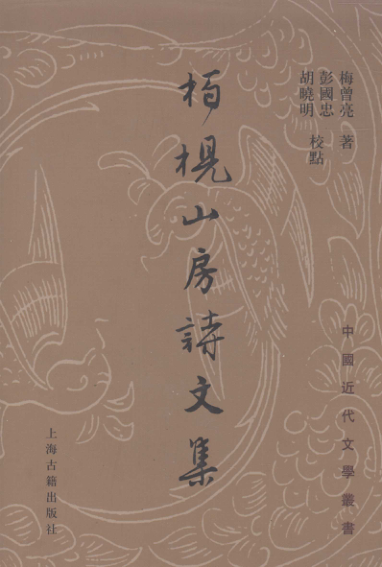 梅曾亮 著
彭國忠
胡曉明 校點
栢梘山房詩文集
中國近代文學叢書
上海古籍出版社